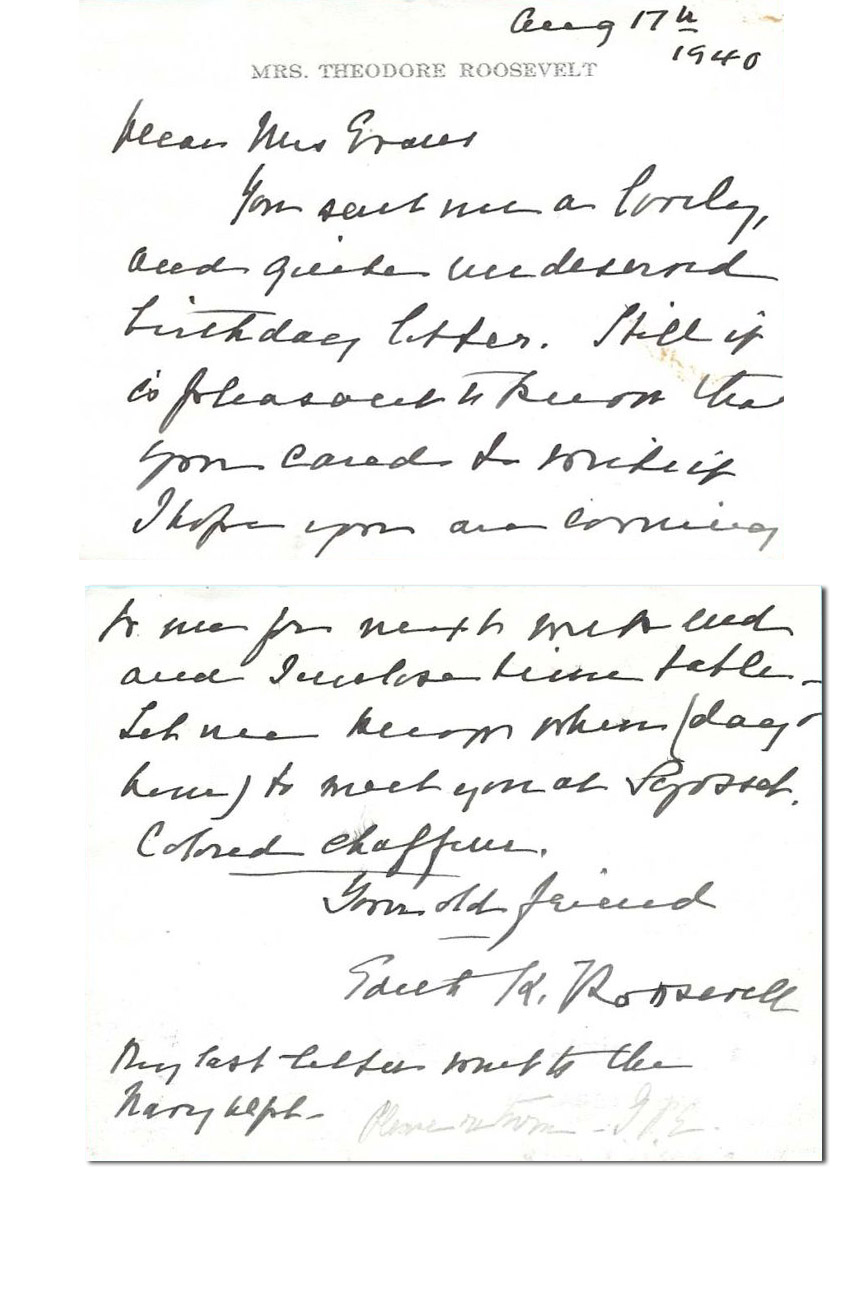 Aug 17th
1940
MRS. THEODORE ROOSEVELT
Dear Mrs Evans
You sent me a lovely,
and quite undeserved
birthday letter. Still it
is pleasant to know tha
you cared to write it
I hope you are coming
to me for next week end
and I enclose time table –
Let me know when (day &
hour) to meet you at Syosset.
Colored chaffeur.
Your old friend
Edith K. Roosevelt
My last letter went to the
Navy Dept –
Please return –